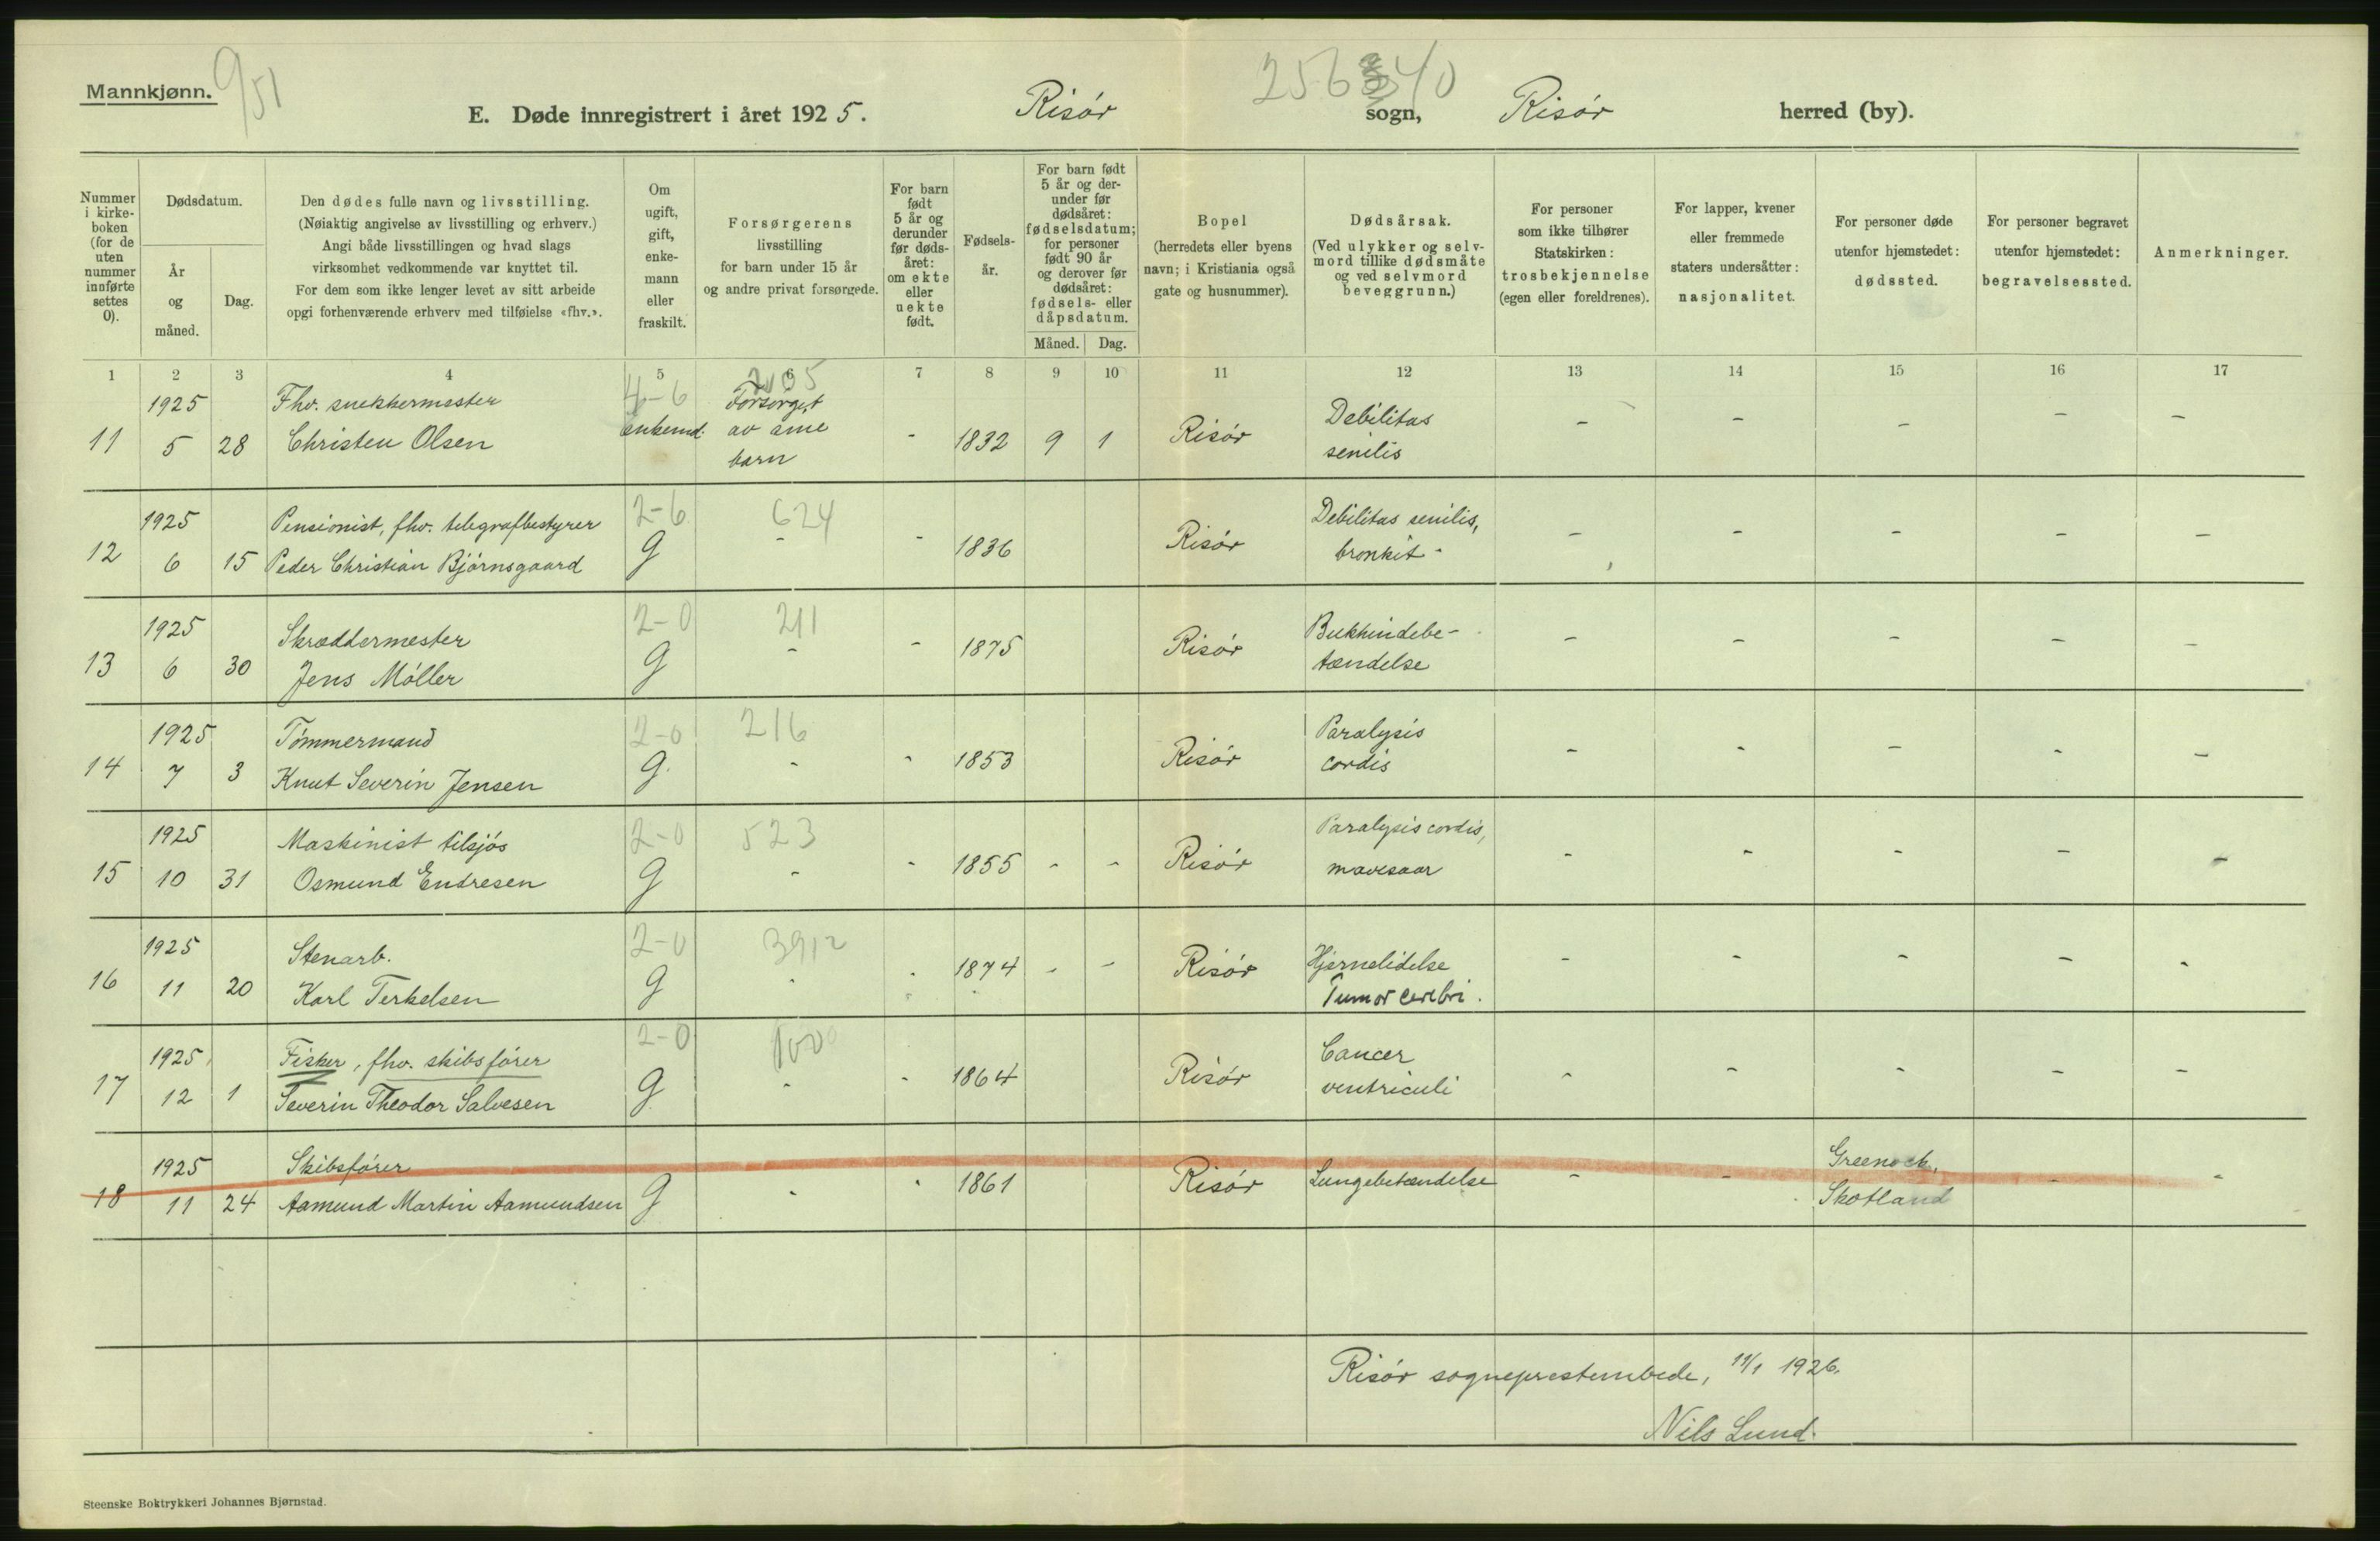 Mannkjønn.
9/51
256 40
E. Døde innregistrert i året 1925. Risør sogn, Risør herred (by).
Nummer i kirke-boken (for de uten nummer innførte settes 0).
Dødsdatum.
År og måned.
Dag.
Den dødes fulle navn og livsstilling.
(Nøiaktig angivelse av livsstilling og erhverv.)
Angi både livsstillingen og hvad slags
virksomhet vedkommende var knyttet til.
For dem som ikke lenger levet av sitt arbeide
opgi forhenværende erhverv med tilføielse «fhv.».
Om ugift, gift, enke-mann eller fraskilt.
Forsørgerens
livsstilling
for barn under 15 år
og andre privat forsørgede.
For barn født 5 år og derunder før døds-året: om ekte eller uekte født.
Fødsels-år.
For barn født 5 år og der-under før dødsåret: fødselsdatum; for personer født 90 år og derover før dødsåret: fødsels- eller dåpsdatum.
Måned. Dag.
Bopel
(herredets eller byens
navn; i Kristiania også
gate og husnummer).
Dødsårsak.
(Ved ulykker og selv-
mord tillike dødsmåte
og ved selvmord
beveggrunn.)
For personer
som ikke tilhører
Statskirken:
trosbekjennelse
(egen eller foreldrenes).
For lapper, kvener
eller fremmede
staters undersåtter:
nasjonalitet.
For personer døde
utenfor hjemstedet:
dødssted.
For personer begravet
utenfor hjemstedet:
begravelsessted.
Anmerkninger.
1 2 3 4 5 6 7 8 9 10 11 12 13 14 15 16 17
1925 Fhv. snekkermester 4-6 Forsørget Debilitas - - - - -
11 5 28 Christen Olsen enkemd. av sine - 1832 9 1 Risør senilis
barn
1925 Pensionist, fhv. telegrafbestyrer 2-6 624 Debilitas senilis,
12 6 15 Peder Christian Bjørnsgaard g - - 1836 Risør bronkit - - - - - -
1925 Skræddermester 2-0 211 Bukhindebe-
13 6 30 Jens Møller g - - 1875 Risør tændelse - - - - -
1925 Tømmermand 2-0 216 Paralysis
14 7 3 Knut Severin Jensen g. - - 1853 Risør cordis - - - - -
1925 Maskinist tilsjøs 2-0 523 Paralysis cordis,
15 10 31 Osmund Endresen g - - 1855 - - Risør mavesaar - - - - -
1925 Stenarb. 2-0 3912 Hjernelidelse
16 11 20 Karl Terkelsen g - - 1874 - - Risør Tumor cerebri. - - - - -
1925 Fisker, fhv. skibsfører 2-0 Cancer
17 12 1 Severin Theodor Salvesen g - - 1864 Risør ventriculi - - - - -
1925 Skibsfører Greenock,
18 11 24 Aamund Martin Aamundsen g - - 1861 Risør Lungebetændelse - - Skotland - -
Risør sogneprestembede, 11/1 1926.
Nils Lund.
Steenske Boktrykkeri Johannes Bjørnstad.